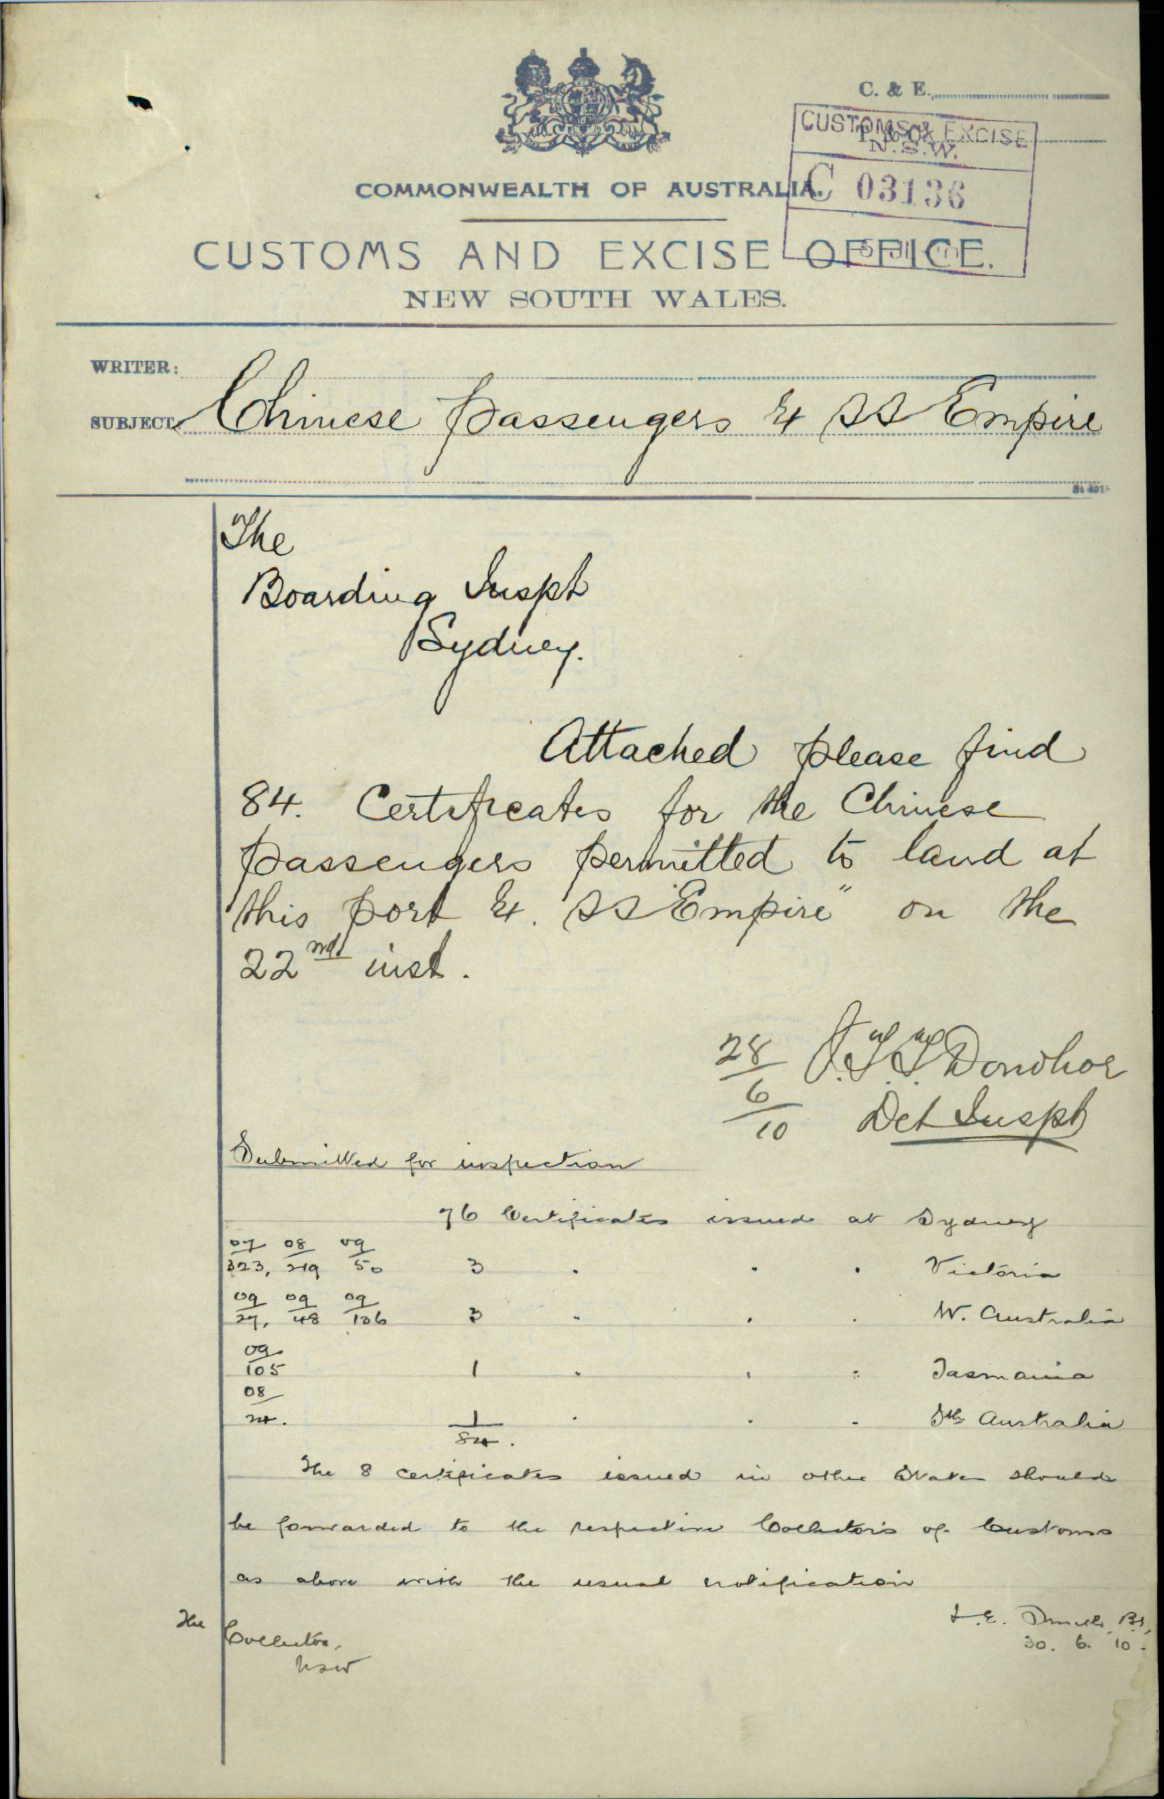 C. & E.
T. & C.
CUSTOMS & EXCISE
N.S.W.
C 03136
COMMONWEALTH OF AUSTRALIA.
CUSTOMS AND EXCISE OFFICE.
NEW SOUTH WALES.
WRITER:
SUBJECT: Chinese passengers ex SS Empire
The
Boarding Inspt
Sydney.
Attached please find
84. Certificates for the Chinese
passengers permitted to land at
this port ex. SS "Empire" on the
22nd inst.
28/6/10 J.T.T. Donohoe
Det Inspt
Submitted for inspection
76 Certificates issued at Sydney
07/323, 08/219 09/50 3 " " " Victoria
09/27, 09/48 09/106 3 " " " W. Australia
09/105 1 " " " Tasmania
08/24. 1 " " " Sth Australia
84.
The 8 certificates issued in other States should
be forwarded to the respective Collectors of Customs
as above with the usual notification
The Collector,
NSW
30. 6. 10.